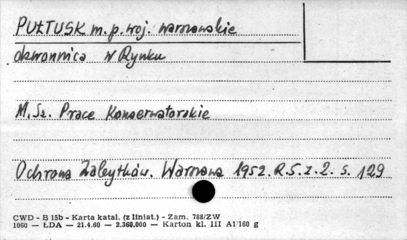 PUŁTUSK m. p. woj. warszawskie
dzwonnica w Rynku
M. Sz. Prace Konserwatorskie
Ochrona Zabytków. Warszawa 1952. R. 5. z. 2. s. 129
CWD - B 15b - Karta katal. (z liniat.) - Zam. 788/ZW
1060 — ŁDA — 21.4.60 — 2.360.000 — Karton kl. III A1/160 g